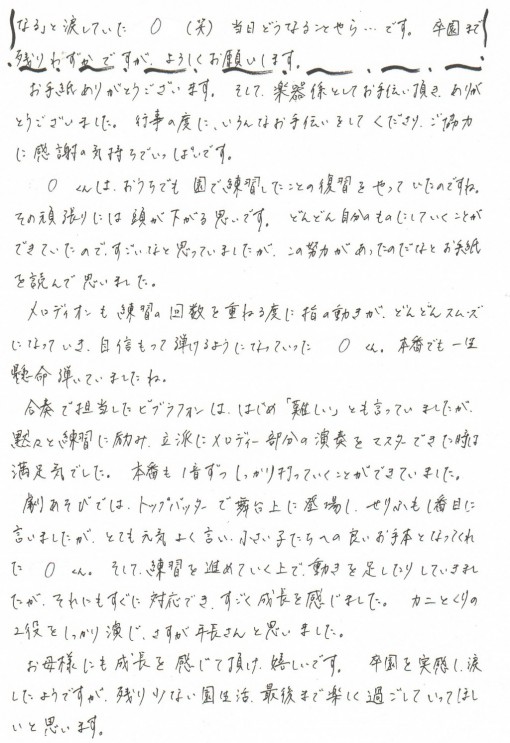 なる」と涙していた 〇 (笑) 当日どうなることやら…です。 卒園まで
残りわずかですが、よろしくお願いします。
お手紙ありがとうございます。 そして、楽器係としてお手伝い頂き、ありが
とうございました。 行事の度に、いろんなお手伝いをしてくださり、ご協力
に感謝の気持ちでいっぱいです。
〇 くんは、おうちでも 園で練習したことの復習をやっていたのですね。
その頑張りには 頭が下がる思いです。 どんどん自分のものにしていくことが
できていたので、すごいなと思っていましたが、この努力があったのだなとお手紙
を読んで思いました。
メロディオンも練習の回数を重ねる度に指の動きが、どんどんスムーズ
になっていき、自信もって弾けるようになっていった 〇 くん。本番でも一生
懸命弾いていましたね。
合奏で担当したビブラフォンは、はじめ「難しい」とも言っていましたが、
黙々と練習に励み、立派にメロディー部分の演奏をマスターできた時は
満足気でした。 本番も1音ずつしっかり打っていくことができていました。
劇あそびでは、トップバッターで舞台上に登場し、せりふも1番目に
言いましたが、とても元気よく言い、小さい子たちへの良いお手本となってくれ
た 〇 くん。 そして、練習を進めていく上で、動きを足したりしていきまし
たが、それにもすぐに対応でき、すごく成長を感じました。 カニとくりの
2役をしっかり演じ、さすが年長さんと思いました。
お母様にも成長を感じて頂け、嬉しいです。 卒園を実感し、涙
したようですが、残り少ない園生活、最後まで楽しく過ごしていってほし
いと思います。